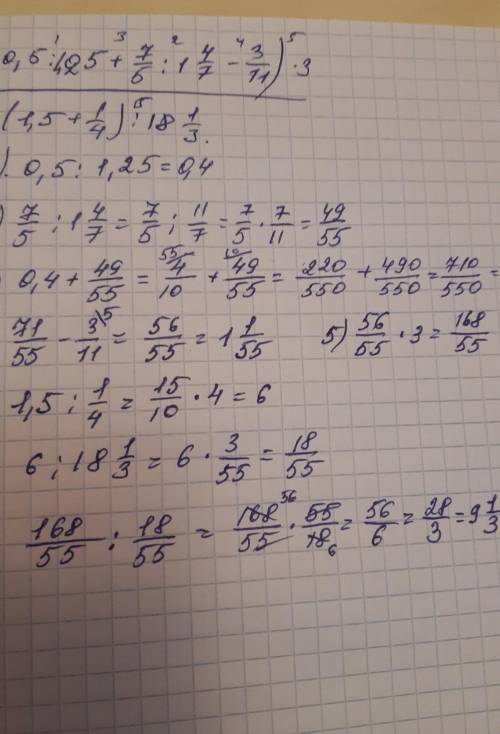 0,5 : 1,25 + 7/5 : 1 4/7 - 3/11) · 3
(1,5 + 1/4) : 18 1/3.
). 0,5 : 1,25 = 0,4
) 7/5 : 1 4/7 = 7/5 : 11/7 = 7/5 · 7/11 = 49/55
0,4 + 49/55 = 4/10 + 49/55 = 220/550 + 490/550 = 710/550 =
71/55 - 3/11 = 56/55 = 1 1/55 5) 56/55 · 3 = 168/55
1,5 : 1/4 = 15/10 · 4 = 6
6 : 18 1/3 = 6 · 3/55 = 18/55
168/55 : 18/55 = 168/55 · 55/18 = 56/6 = 28/3 = 9 1/3